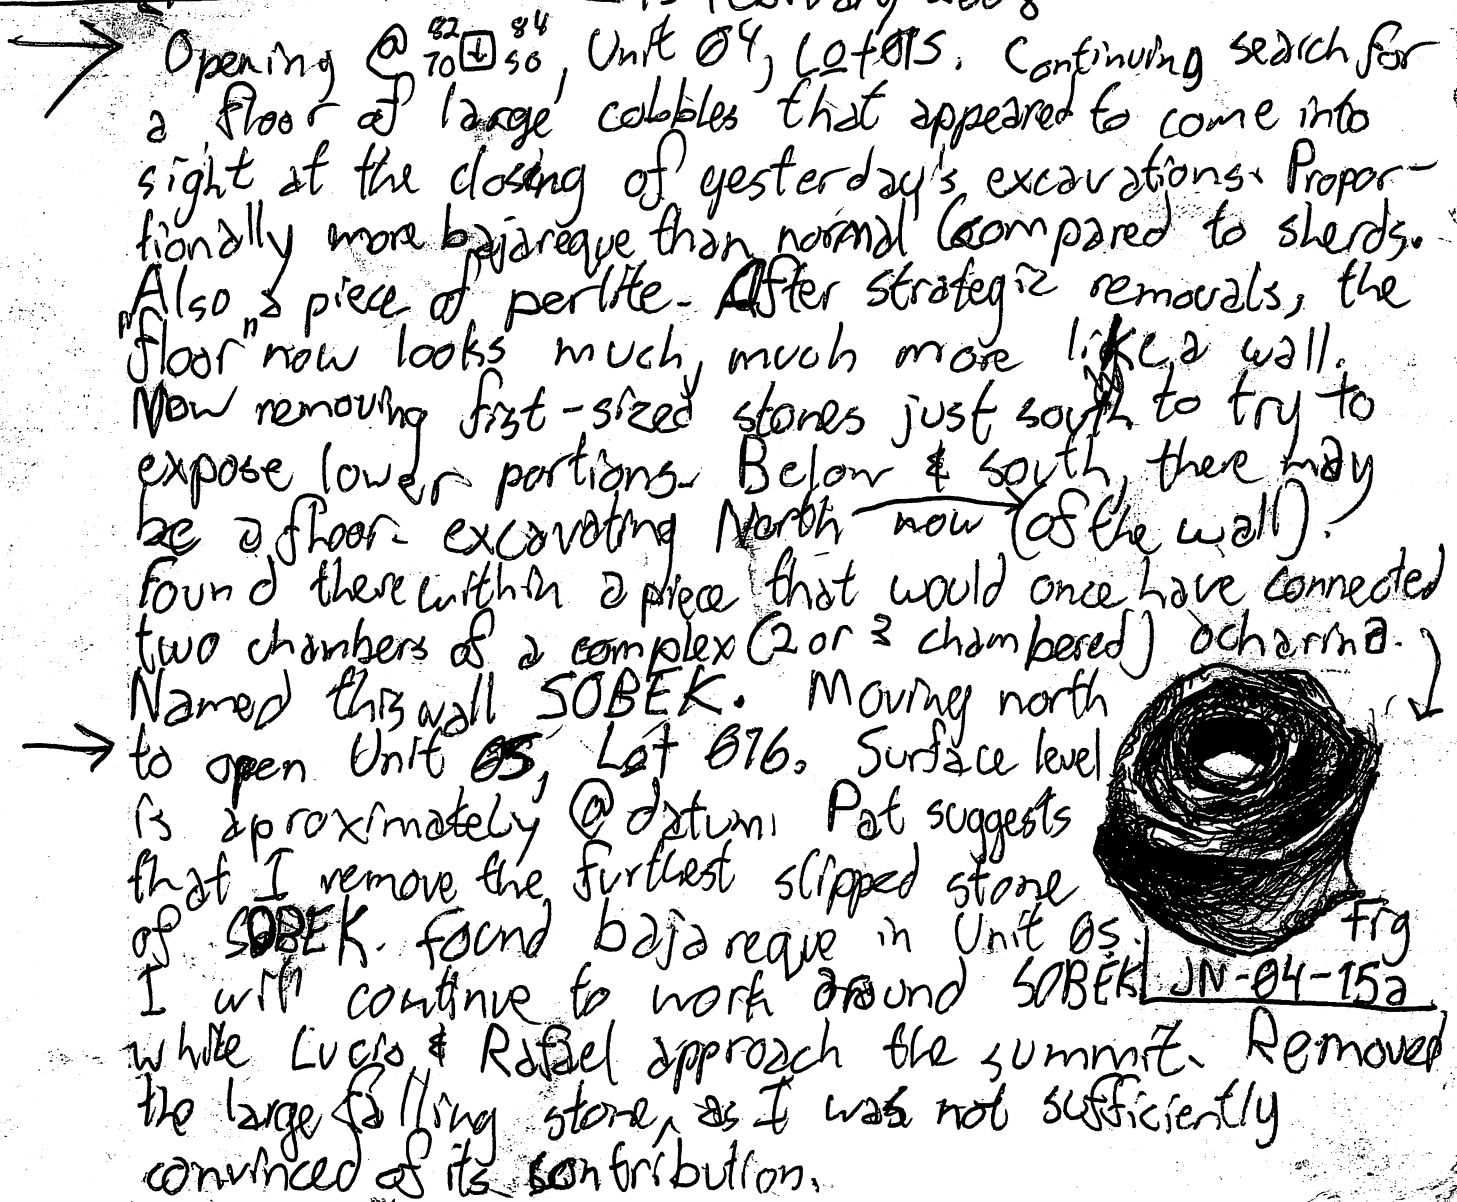 15 February 2008
Opening @ 82 84 70 [↓] 50, Unit 04, Lot 015. Continuing search for
a floor of large cobbles that appeared to come into
sight at the closing of yesterday's excavations. Propor-
tionally more bajareque than normal (compared to sherds.
Also a piece of perlite. After strategic removals, the
"floor" now looks much, much more like a wall.
Now removing fist-sized stones just south to try to
expose lower portions. Below & south, there may
be a floor. excavating North now (of the wall).
Found there within a piece that would once have connected
two chambers of a complex (2 or 3 chambered) ocharina.
Named this wall SOBEK. Moving north
to open Unit 05, Lot 016. Surface level
is aproximately @ datum. Pat suggests
that I remove the furthest slipped stone
of SOBEK. Found bajareque in Unit 05.
Frg
JN-04-15a
I will continue to work around SOBEK
while Lucio & Rafael approach the summit. Removed
the large falling stone, as I was not sufficiently
convinced of its contribution.